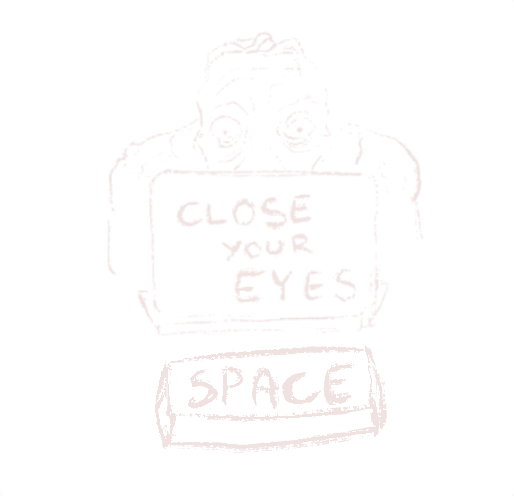 CLOSE
YOUR
EYES
SPACE